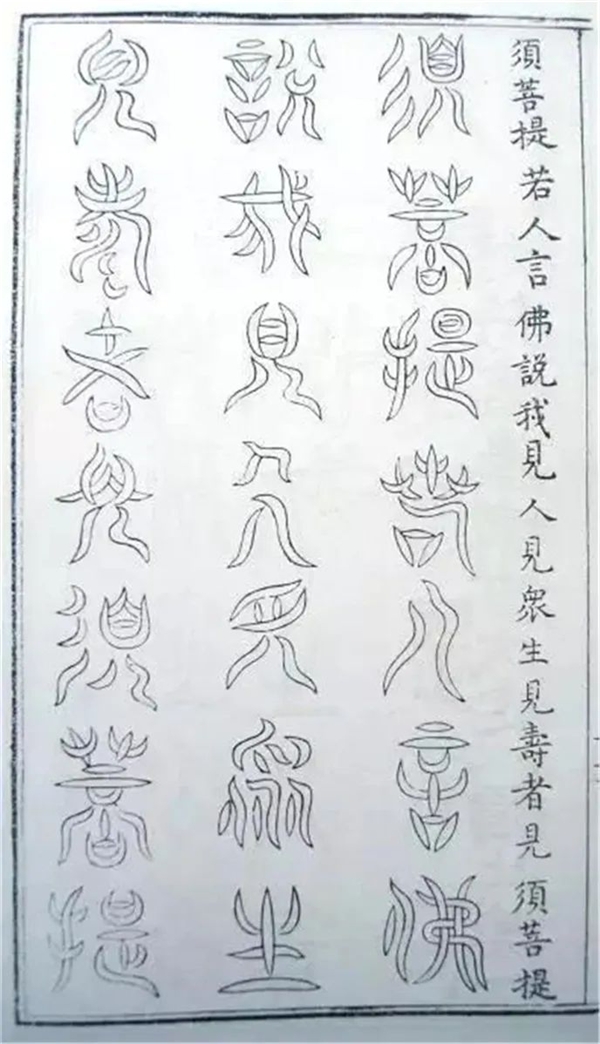 須菩提若人言佛說我見人見眾生見壽者見須菩提
須菩提若人言佛
說我見人見眾生
見壽者見須菩提